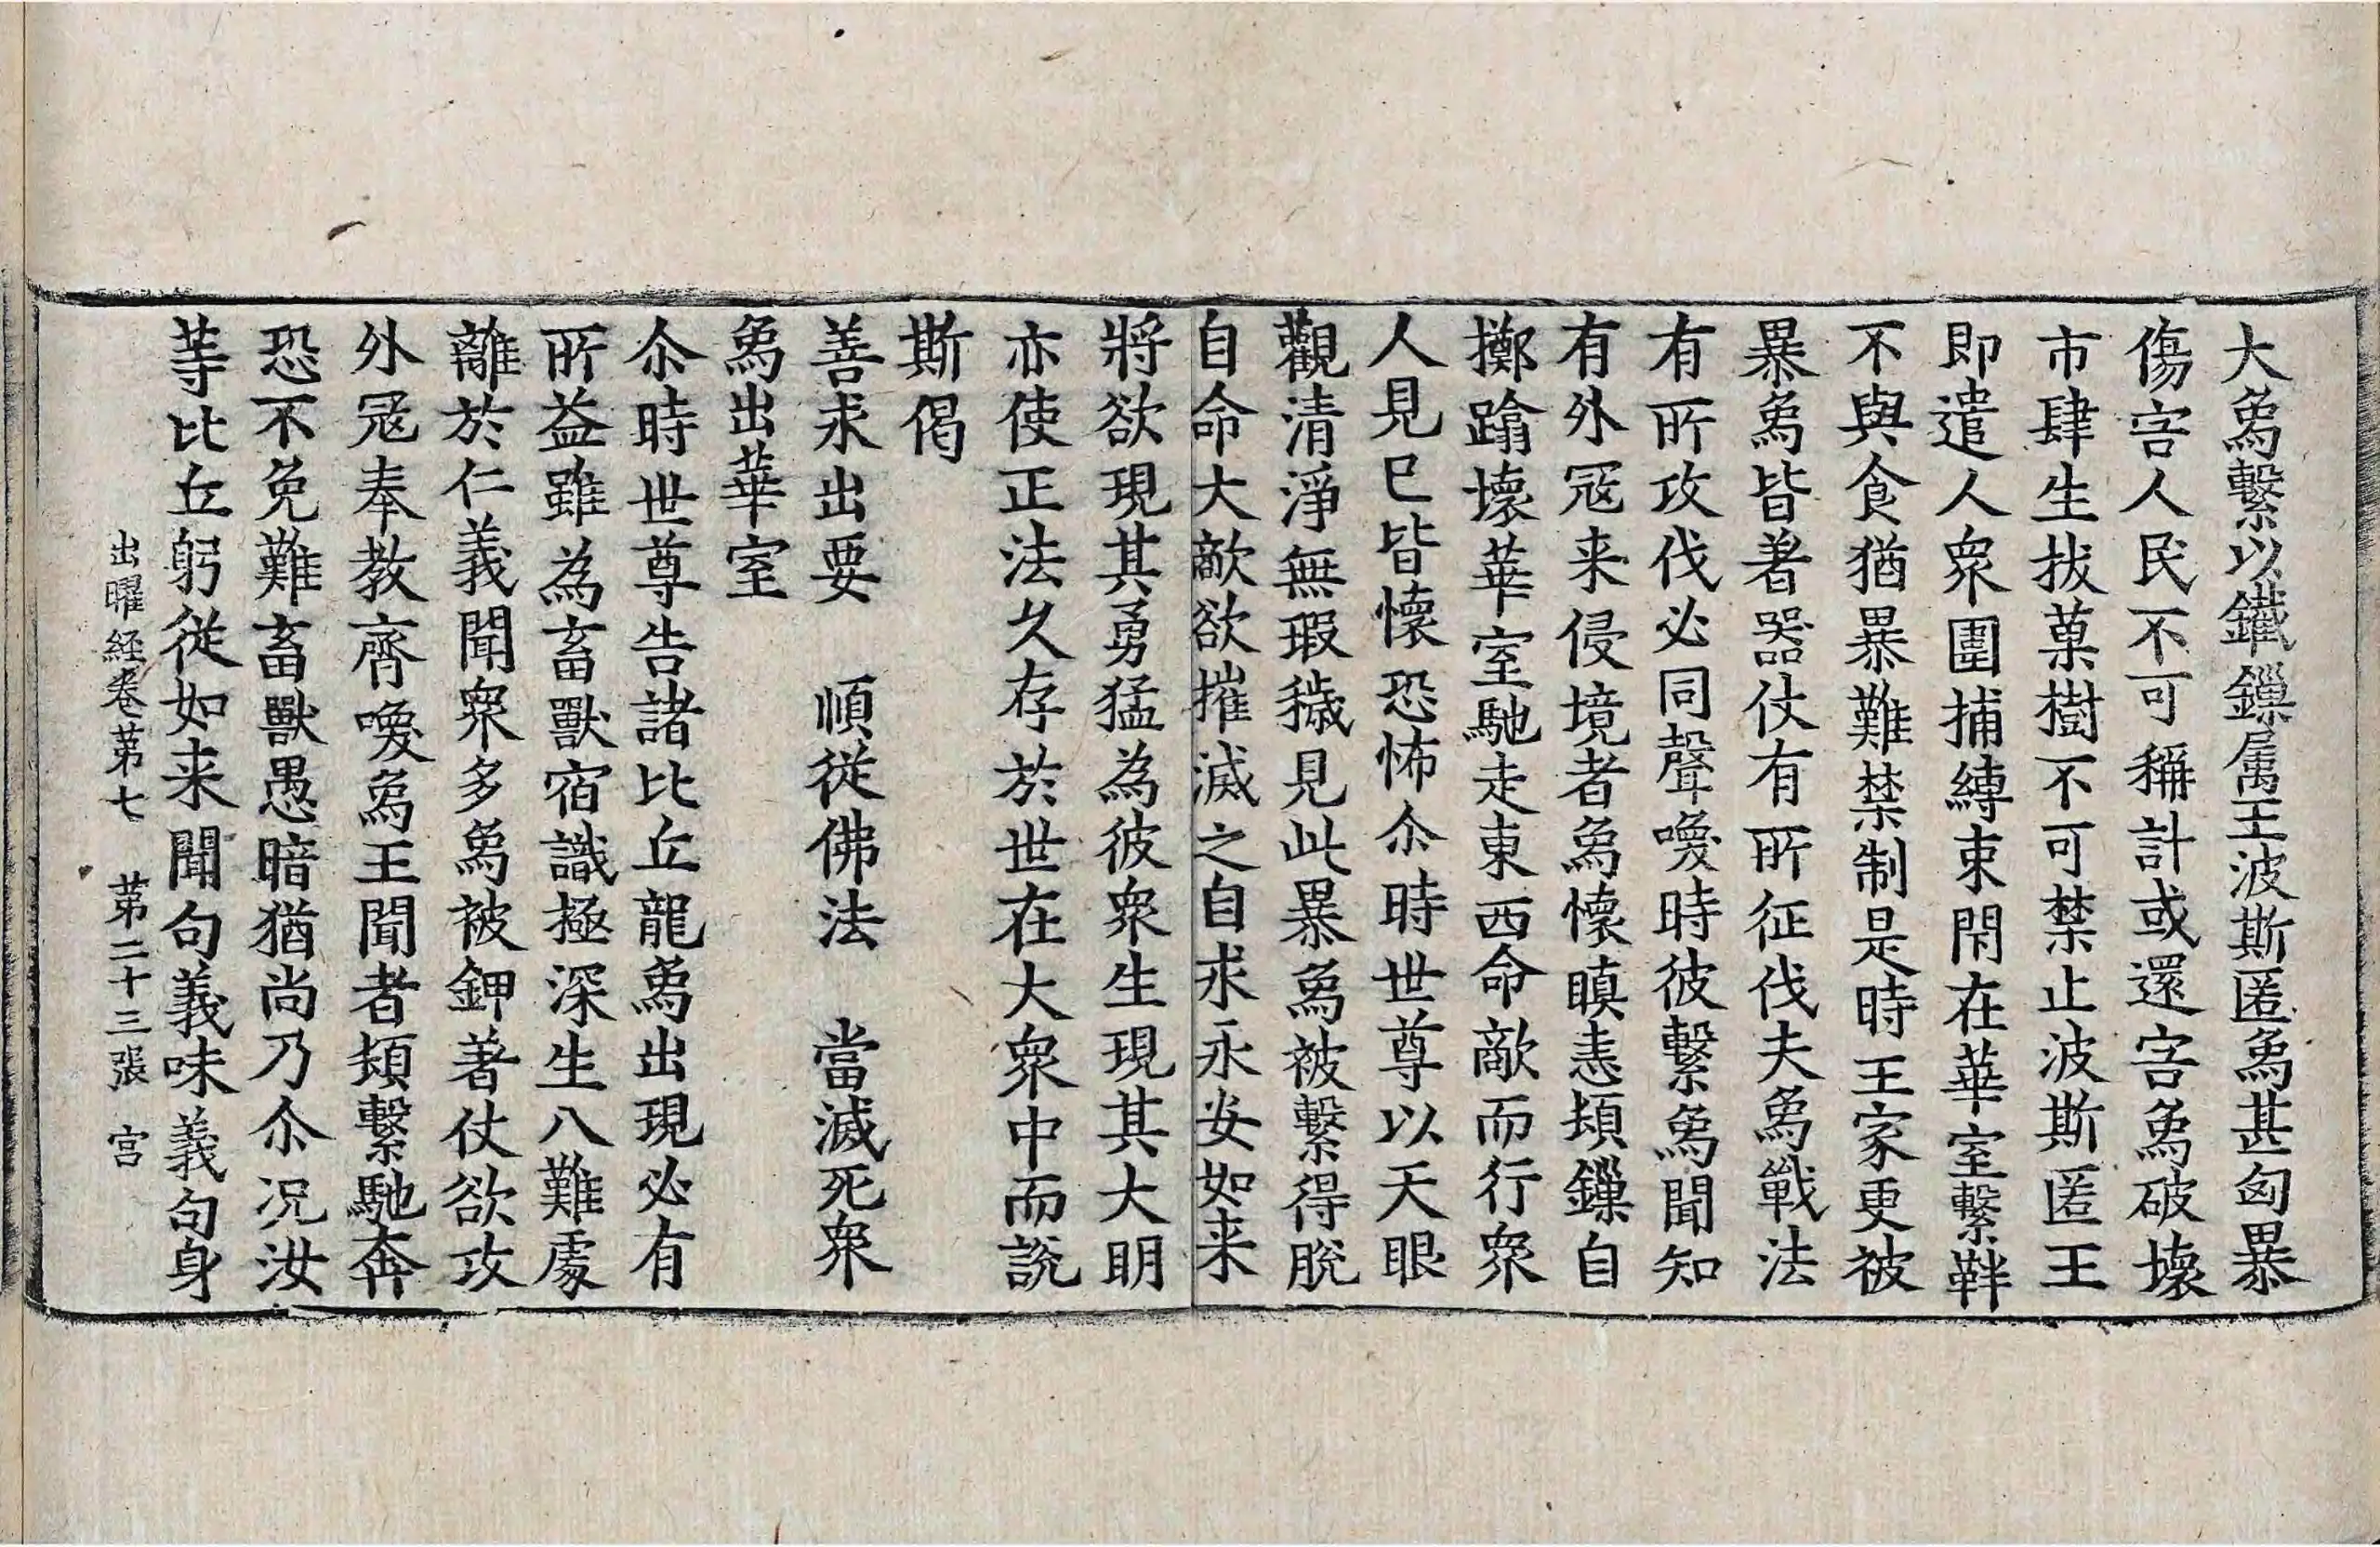 大象繫以鐵鏁属王波斯匿象甚匈暴
傷害人民不可稱計或還害象破壞
市肆生拔菓樹不可禁止波斯匿王
即遣人衆圍捕縛束閇在華室繫靽
不與食猶暴難禁制是時王家更被
暴象皆著器仗有所征伐夫象戰法
有所攻伐必同聲喚時彼繫象聞知
有外冦来侵境者象懷瞋恚頓鏁自
擲踰壞華室馳走東西命敵而行衆
人見已皆懷恐怖尒時世尊以天眼
觀清淨無瑕穢見此暴象被繫得脫
自命大敵欲摧滅之自求永安如来
將欲現其勇猛為彼衆生現其大明
亦使正法久存於世在大衆中而說
斯偈
善求出要　順從佛法　當滅死衆
象出華室
尒時世尊告諸比丘龍象出現必有
所益雖為畜獸宿識極深生八難處
離於仁義聞衆多象被鉀著仗欲攻
外冦奉教齊喚象王聞者頓繫馳奔
恐不免難畜獸愚暗猶尚乃尒况汝
等比丘躬從如来聞句義味義句身
出曜経卷第七　第二十三張　宫